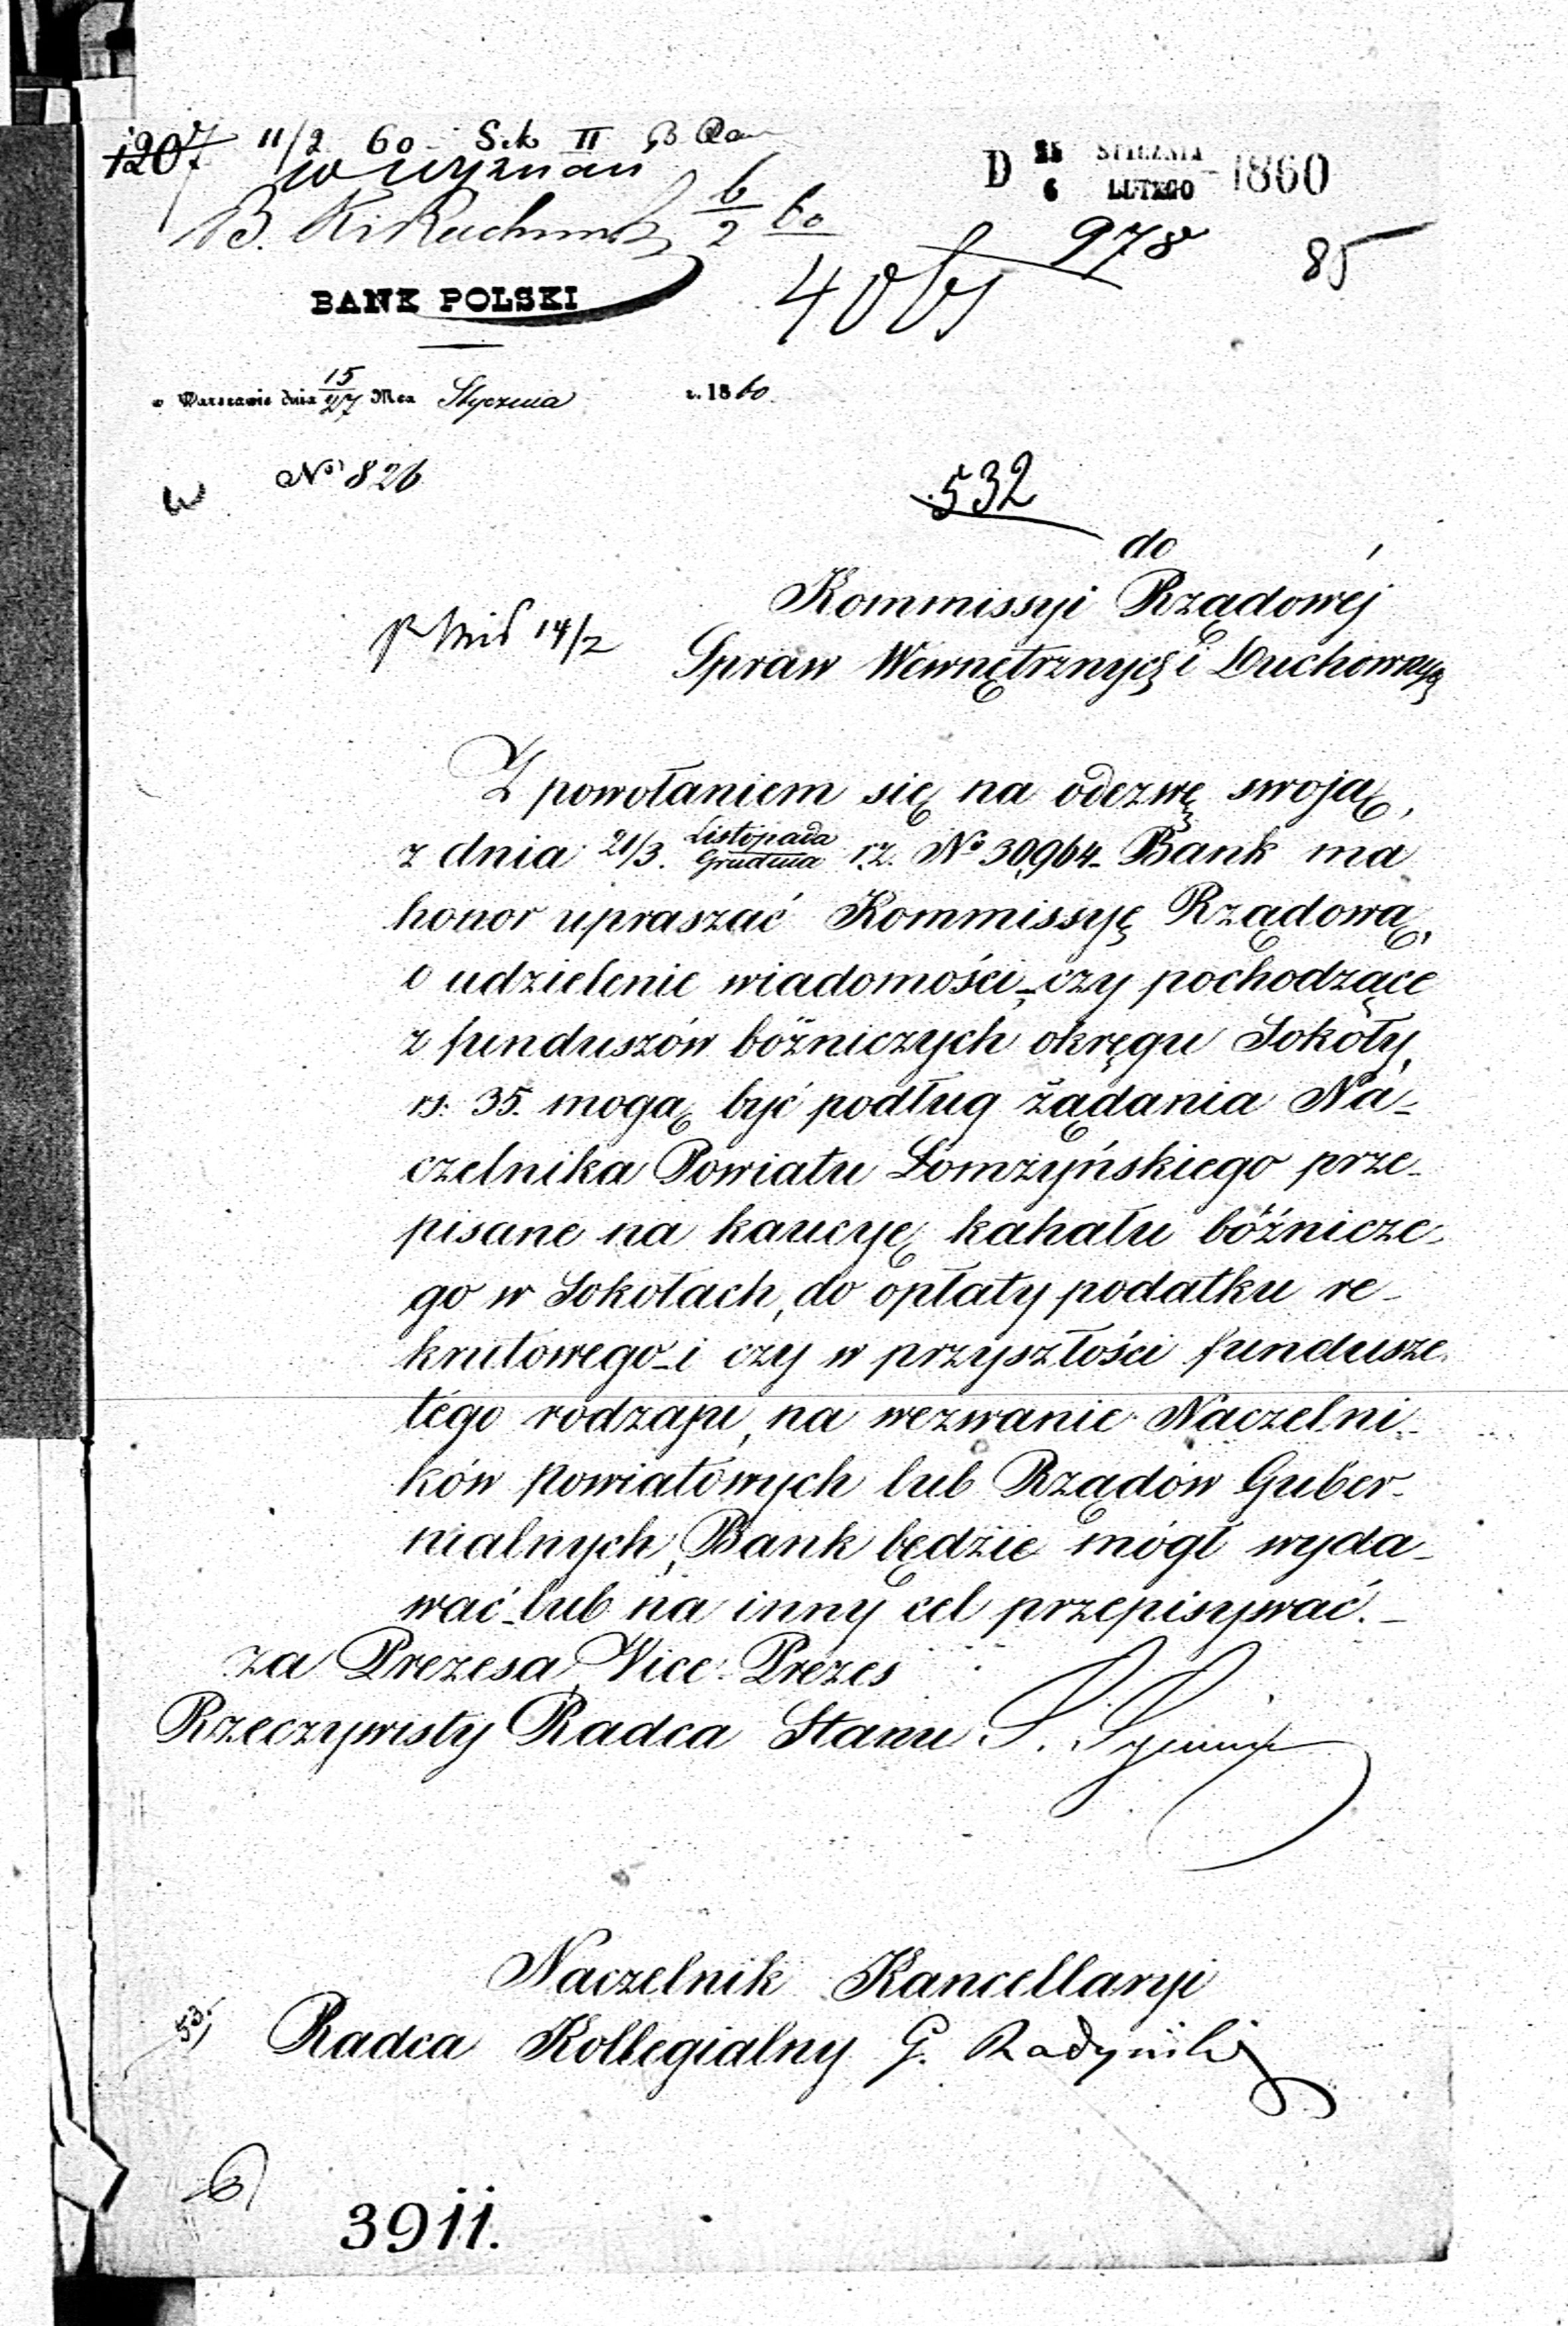 1207 11/2 60 Sek II
W Wyznań
B. 6/2 60
D 25 STYCZNIA 6 LUTEGO 1860
978
85
BANK POLSKI
w Warszawie dnia 15/27 Mca Stycznia r. 1860.
No 826
532
do
Kommissyi Rządowéj
14/2
Spraw Wewnętrznych i Duchownych
Z powołaniem się na odezwę swoją,
z dnia 21/3. Listopada/Grudnia r.z. No 30,964. Bank ma
honor upraszać Kommissyę Rządową,
o udzielenie wiadomości, czy pochodzące
z funduszów bóżniczych okręgu Sokoły,
rs: 35. mogą być podług żądania Na-
czelnika Powiatu Łomżyńskiego prze-
pisane na kaucyę kahału bóźnicze-
go w Sokołach, do opłaty podatku re-
krutowego i czy w przyszłości fundusze
tego rodzaju, na wezwanie Naczelni-
ków Powiatowych lub Rządów Guber-
nialnych, Bank będzie mógł wyda-
wać lub na inny cel przepisywać. -
za Prezesa, Vice-Prezes
Rzeczywisty Radca Stanu
Naczelnik Kancellaryi
53.
Radca Kollegialny G. Radyński
3911.